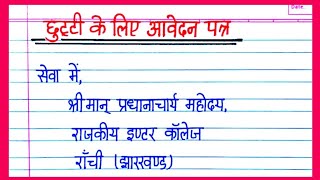 Date
छुट्टी के लिए आवेदन पत्र
सेवा में,
श्रीमान् प्रधानाचार्य महोदय,
राजकीय इण्टर कॉलेज
राँची (झारखण्ड)